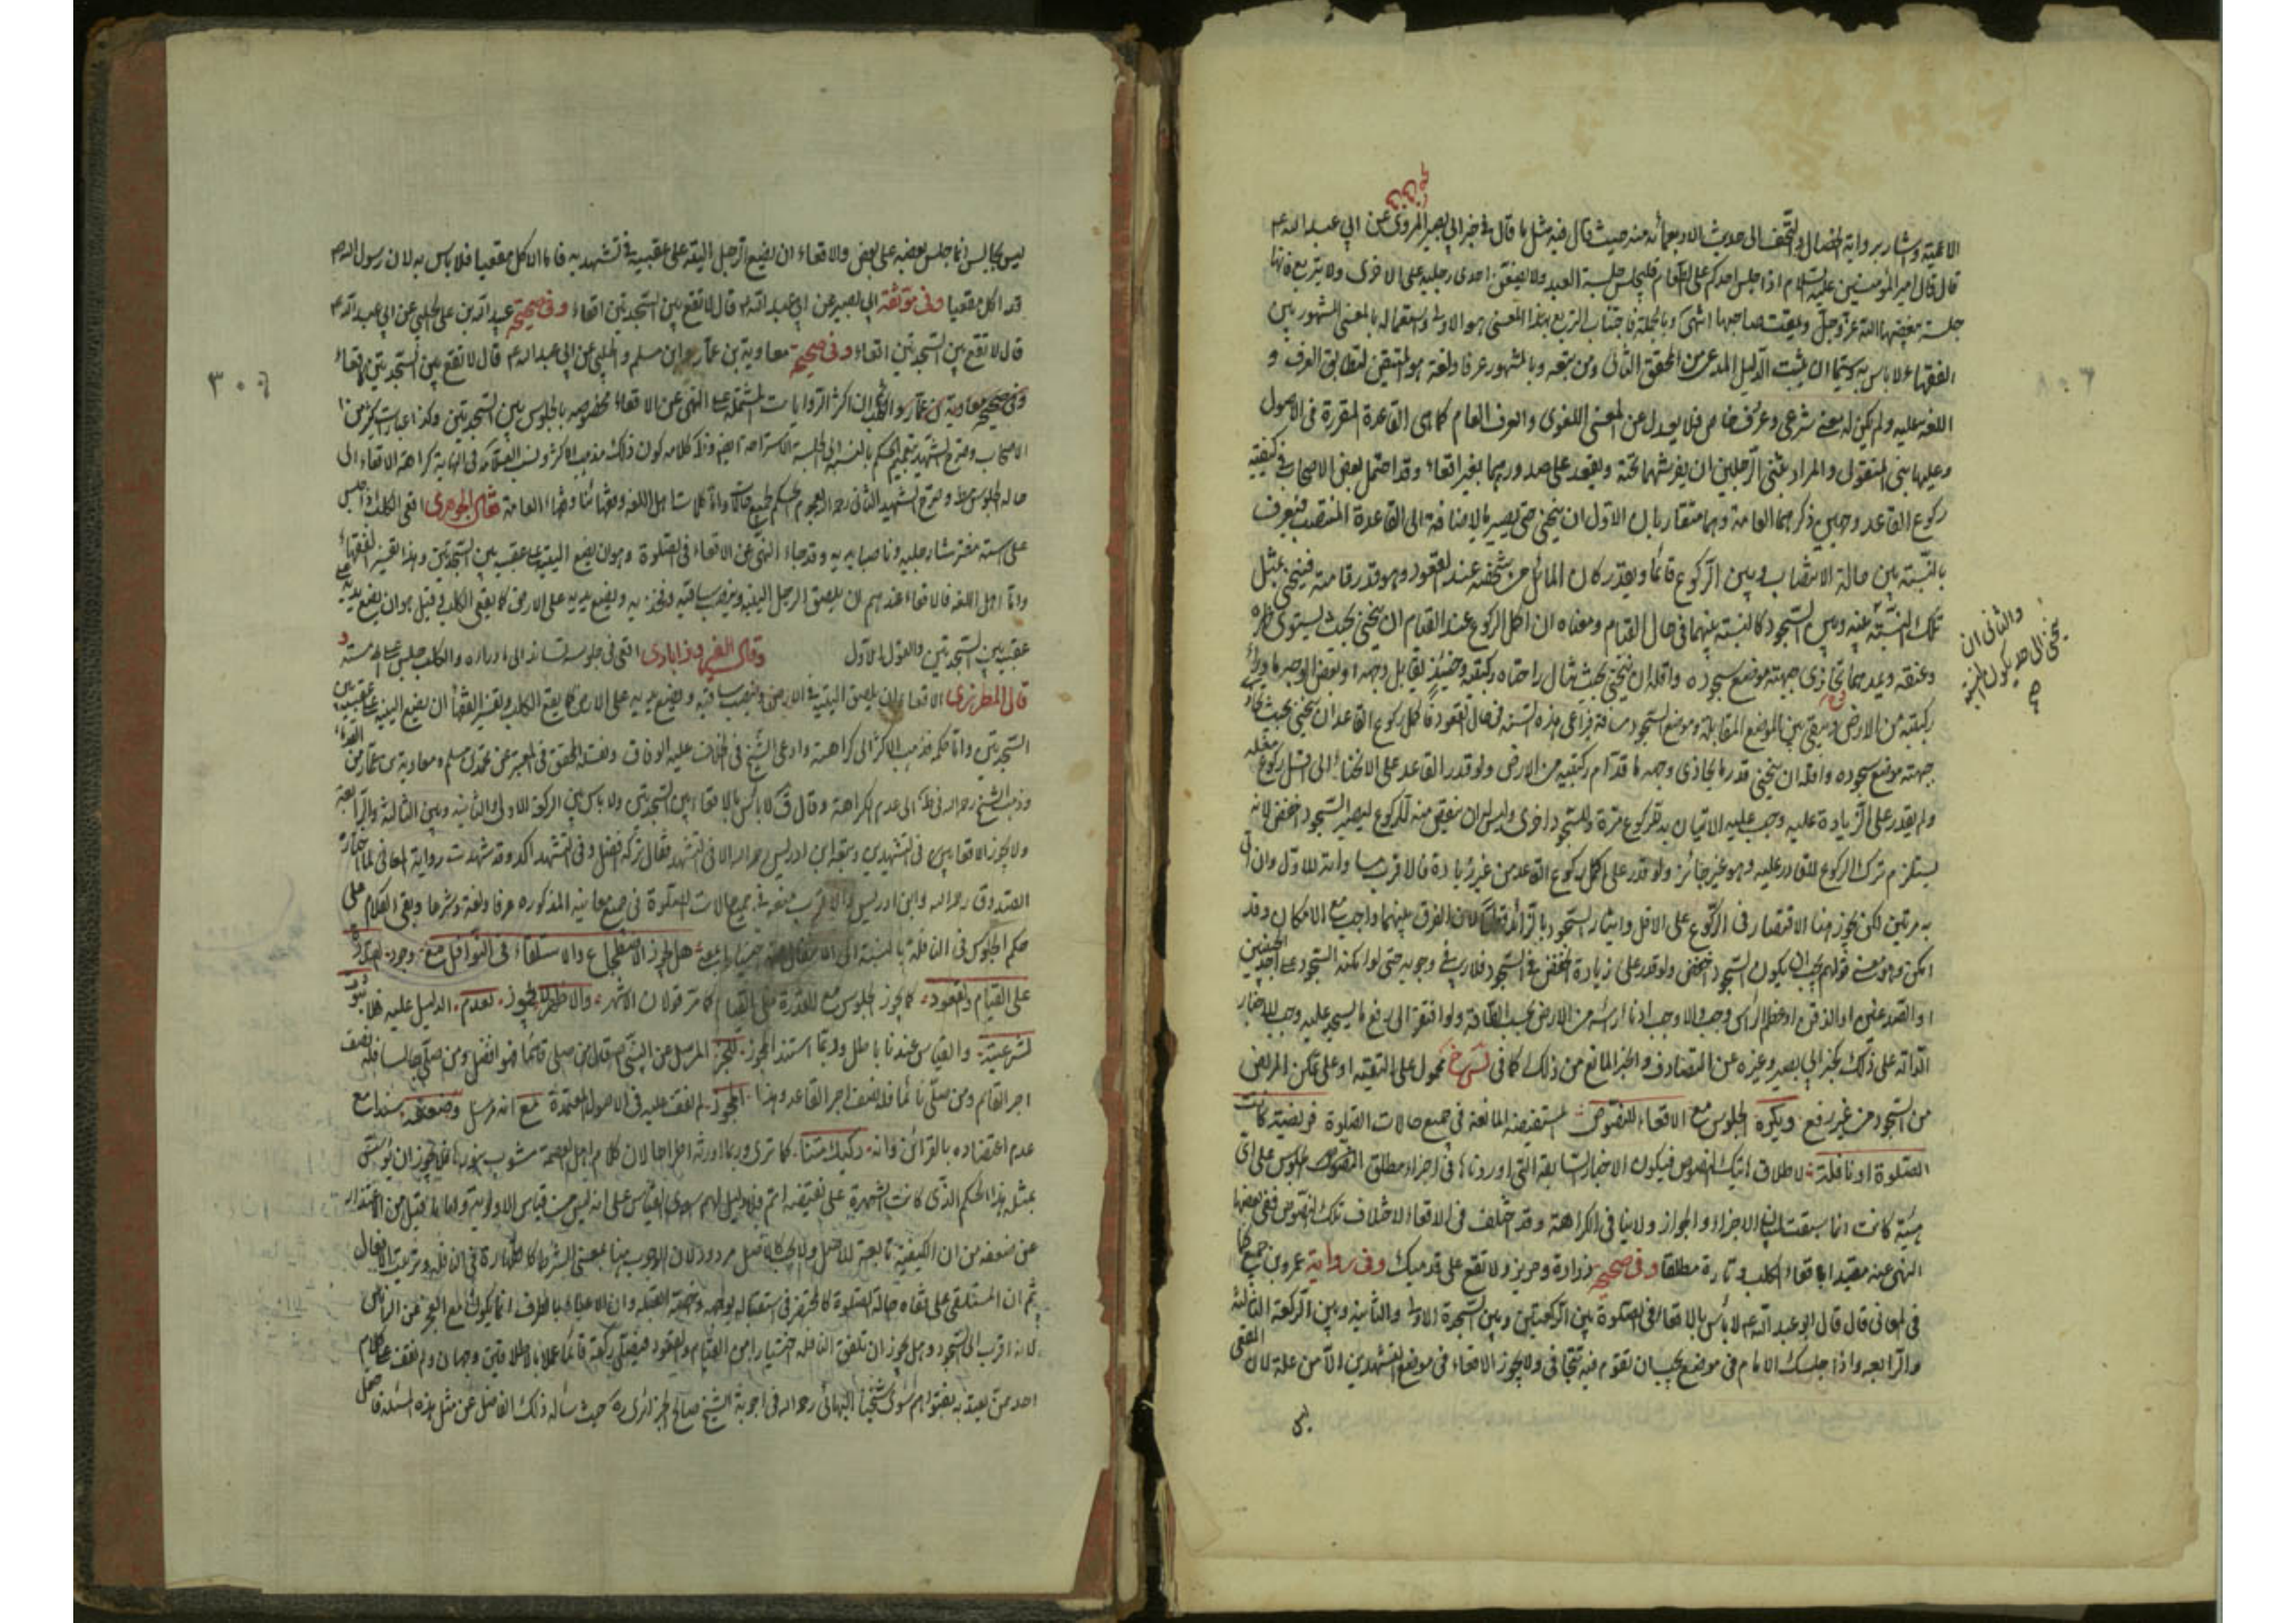 الاعمية وشار برواية الخصال والتحف الى حديث الاربعمائه منه حيث قال فيه مثل ما قال في خبر ابي بصير المروي عن ابي عبد الله ع
قال قال امير المؤمنين عليه السلام اذا جلس احدكم على الطعام فليجلس جلسة العبد ولا يضعن احدى رجليه على الاخرى ولا يتربع فانها
جلسة يبغضها الله عز وجل ويمقت صاحبها انتهى وبالجملة فاجتناب التربع بهذا المعنى هو الاولى واستعماله بالمعنى المشهور بين
الفقهاء لا باس به سيما ان يثبت الدليل المدعى من المحقق الثاني ومن تبعه وبالمشهور عرفا ولغة هو المتيقن لتطابق العرف و
اللغة عليه ولم يكن له معنى شرعي وعرف خاص فلا يعدل عن المعنى اللغوي والعرف العام كما هي القاعدة المقررة في الاصول
وعليها بنى المنقول والمراد بثنى الرجلين ان يفرشهما تحته ويقعد على صدورهما بغير اقعاء وقد احتمل بعض الاصحاب في كيفية
ركوع القاعد وجهين ذكرهما العامة وهما متقاربان الاول ان ينحني حتى يصير بالاضافة الى القاعدة المنتصب فيعرف
بالنسبة بين حالة الانتصاب وبين الركوع قائما ويقدر كان المائل من شخصه عند القعود وهو قدر قامته فينحني بمثل
تلك النسبة عنه وبين السجود كالنسبة بينهما في حال القيام ومعناه ان اكمل الركوع عند القيام ان ينحني بحيث يستوي ظهره
والثاني ان
ينحني الى حد يكون النسبة
وعنقه ويديهما تحاذي جبهته موضع سجوده واقله ان ينحني بحيث تنال راحتاه ركبتيه وحينئذ يقابل وجهه او بعض الوجه ما وراء
ركبتيه من الارض ويبقى بين الموضع المقابلة وموضع السجود مسافة فيراعى هذه النسبة في حال القعود فاكمل ركوع القاعد ان ينحني بحيث
جبهته موضع سجوده واقله ان ينحني قدر ما يحاذي وجهه ما قدام ركبتيه من الارض ولو قدر القاعد على الانحناء الى اقل ركوع مثله
ولم يقدر على الزيادة عليه وجب عليه الاتيان به للركوع مرة وللسجود اخرى وليس له ان ينقص منه للركوع ليصير السجود اخفض لانه
يستلزم ترك الركوع للقادر عليه وهو غير جائز ولو قدر على اكمل ركوع القاعد من غير زيادة فالاقرب وان اتى
به مرتين لكن يجوز هنا الاقتصار في الركوع على الاقل وايثار السجود بالزائد لان الفرق بينهما واجب مع الامكان وقد
امكن وهو معنى قولهم يجب ان يكون السجود اخفض ولو قدر على زيادة الخفض في السجود فلا ريب في وجوبه حتى لو امكنه السجود على احد الجبينين
او الصدغين او الذقن او عظم الراس وجب والا وجب ادناء راسه من الارض بحسب الطاقة ولو افتقر الى رفع ما يسجد عليه وجب للاخبار
الدالة على ذلك كخبر ابي بصير وغيره عن الصادق والخبر المانع من ذلك كما في محمول على التقية او على تمكن المريض
من السجود من غير رفع ويكره الجلوس مع الاقعاء للنصوص المستفيضة المانعة في جميع حالات الصلوة فريضة كانت
الصلوة او نافلة لاطلاق تلك النصوص فيكون الاخبار السابقة التي اوردناها في اجزاء مطلق الجلوس على اي
هيئة كانت انما سيقت لبيان الاجزاء والجواز ولا ينافي الكراهة وقد اختلف في الاقعاء لاختلاف تلك النصوص ففي بعضها
النهي عنه مقيدا باقعاء الكلب وتارة مطلقا وفي صحيح زرارة وحريز ولا تقع على قدميك وفي رواية عمرو بن جميع كما
في المعاني قال قال ابو عبد الله ع لا بأس بالاقعاء في الصلوة بين الركعتين وبين السجدة الاولى والثانية وبين الركعة الثالثة
والرابعة واذا اجلسك الامام في موضع يجب ان تقوم فيه تتجافى ولا يجوز الاقعاء في موضع التشهدين الا من علة لان المقعي
ليس
ليس بجالس انما جلس بعضه على بعض والاقعاء ان يضع الرجل اليتيه على عقبيه في تشهديه فاما الاكل مقعيا فلا باس به لان رسول الله ص
قد اكل مقعيا وفي موثقة ابي بصير عن ابي عبد الله ع قال لا تقع بين السجدتين اقعاء وفي صحيحة عبيد الله بن علي الحلبي عن ابي عبد الله ع
قال لا تقع بين السجدتين اقعاء وفي صحيحة معاوية بن عمار وابن مسلم والحلبي عن ابي عبد الله ع قال لا تقع بين السجدتين كاقعاء
٣٠٤
وفي صحيحة معاوية بن عمار والحلبي ان اكثر الروايات المشتملة على النهي عن الاقعاء مخصوصه بالجلوس بين السجدتين وكذا عبارت كثير من
الاصحاب وصرح الشهيد بتعميم الحكم بالنسبة الى جلسة الاستراحة ايضا وظاهر كلامه كون ذلك مذهب الاكثر ونسب العلامة في النهاية كراهة الاقعاء الى
حالة الجلوس مطلقا وصرح الشهيد الثاني رحمه الله بعموم الحكم لجميع واما كلمات اهل اللغة وفقهائنا وفقهاء العامة فقال الجوهري اقعى الكلب اذا جلس
على استه مفترشا رجليه وناصبا يديه وقد جاء النهي عن الاقعاء في الصلوة وهو ان يضع اليتيه على عقبيه بين السجدتين وهذا تفسير الفقهاء
واما اهل اللغة فالاقعاء عندهم ان يلصق الرجل اليتيه وينصب ساقيه وفخذيه ويضع يديه على الارض كما يقعى الكلب وقيل هو ان يضع يديه على
عقبيه بين السجدتين والقول الاول وقال الفيروزابادي اقعى في جلوسه تساند الى ما وراءه والكلب جلس على استه و
قال المطرزي الاقعاء ان يلصق اليتيه في الارض وينصب ساقيه ويضع يديه على الارض كما يقعى الكلب وتفسير الفقهاء ان يضع اليتيه على عقبيه بين
السجدتين واما حكمه فذهب الاكثر الى كراهته وادعى الشيخ في الخلاف عليه الوفاق ونقله المحقق في المعتبر عن محمد بن مسلم ومعاوية بن عمار من القدماء
وذهب الشيخ رحمه الله في ط الى عدم الكراهة وقال ق لا باس بالاقعاء بين السجدتين ولا باس بين الركعة الاولى والثانية وبين الثالثة والرابعة
ولا يجوز الاقعاء في التشهدين وتبعه ابن ادريس رحمه الله الا في التشهد فقال تركه افضل وفي التشهد اكد وقد شهدت رواية المعاني لما اختاره
الصدوق رحمه الله وابن ادريس والاقرب منعه في جميع حالات الصلوة في جميع معانيه المذكوره عرفا ولغة وشرعا وبقي الكلام على
حكم الجلوس في النافلة بالنسبة الى هل يجوز الاضطجاع والاستلقاء في النوافل مع وجود القدرة
على القيام والقعود كما يجوز الجلوس مع القدرة على القيام كما مر قولان الاشهر والاظهر لا يجوز لعدم الدليل عليه فلا
شرعية والقياس عندنا باطل وربما استند المجوز للخبر المرسل عن النبي ص قال من صلى قائما فهو افضل ومن صلى جالسا فله نصف
اجر القائم ومن صلى نائما فله نصف اجر القاعد وهذا الخبر لم نقف عليه في الاصول المعتمدة مع انه مرسل وضعيف سندا مع
عدم اعتضاده بالقرائن وانه ركيك متنا كما ترى وربما اورثه اطراحا لان كلام اهل العصمة مشوب بنور فلا يجوز ان يؤسس
بمثله هذا الحكم الذي كانت الشهرة على نقيضه اتم فلا دليل لهم سوى القياس على انه ليس من قياس الاولوية واما ما قيل من الاعتذار
عن ضعفه من ان الكيفية تابعة للاصل ولا يجب كالاصل مردود لان الوجوب هنا بمعنى الشرط كالطهارة في النافلة وترتيب الافعال
ثم ان المستلقي على قفاه حالة الصلوة كالمحتضر في استقباله بوجهه وجهة القبلة وان الايماء بالطرف انما يكون مع العجز عن الراس
لانه اقرب الى السجود وهل يجوز ان تلفق النافلة اختيارا من القيام والقعود فيصلى ركعة قائما عملا بالاطلاقين وجهان ولم نقف على كلام
احد ممن يعتد بفتواهم سوى شيخنا البهائي رحمه الله في اجوبة الشيخ صالح الجزائري ره حيث سأله ذلك الفاضل عن مثل هذه المسئلة فاجمل